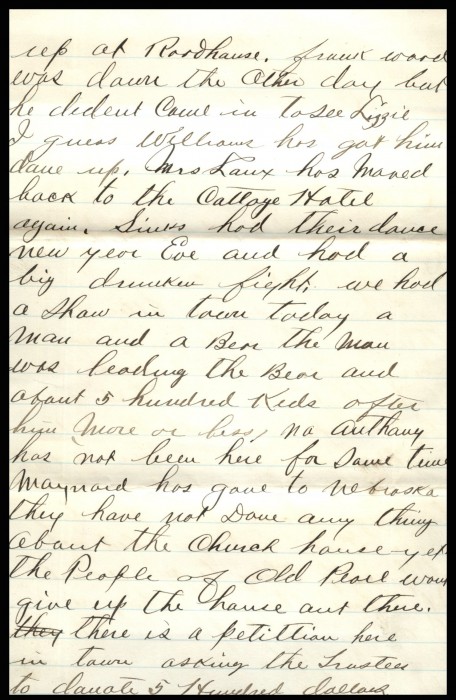 up at Roodhouse. frank wood
was down the Other day but
he dident Come in to see Lizzie
I guess Williams has got him
done up. Mrs Faux has Moved
back to the Cottage Hotel
again. Sinks had their dance
new year Eve and had a
big drunken fight, we had
a Show in town today a
Man and a Bear the Man
was leading the Bear and
about 5 hundred Kids after
him More or less, no Anthony
has not been here for Some time
Maynard has gone to Nebraska
they have not Done any thing
about the Church house yet
the People of Old Pearl wont
give up the house out there.
they there is a petittion here
in town asking the Trustees
to donate 5 Hundred dollars